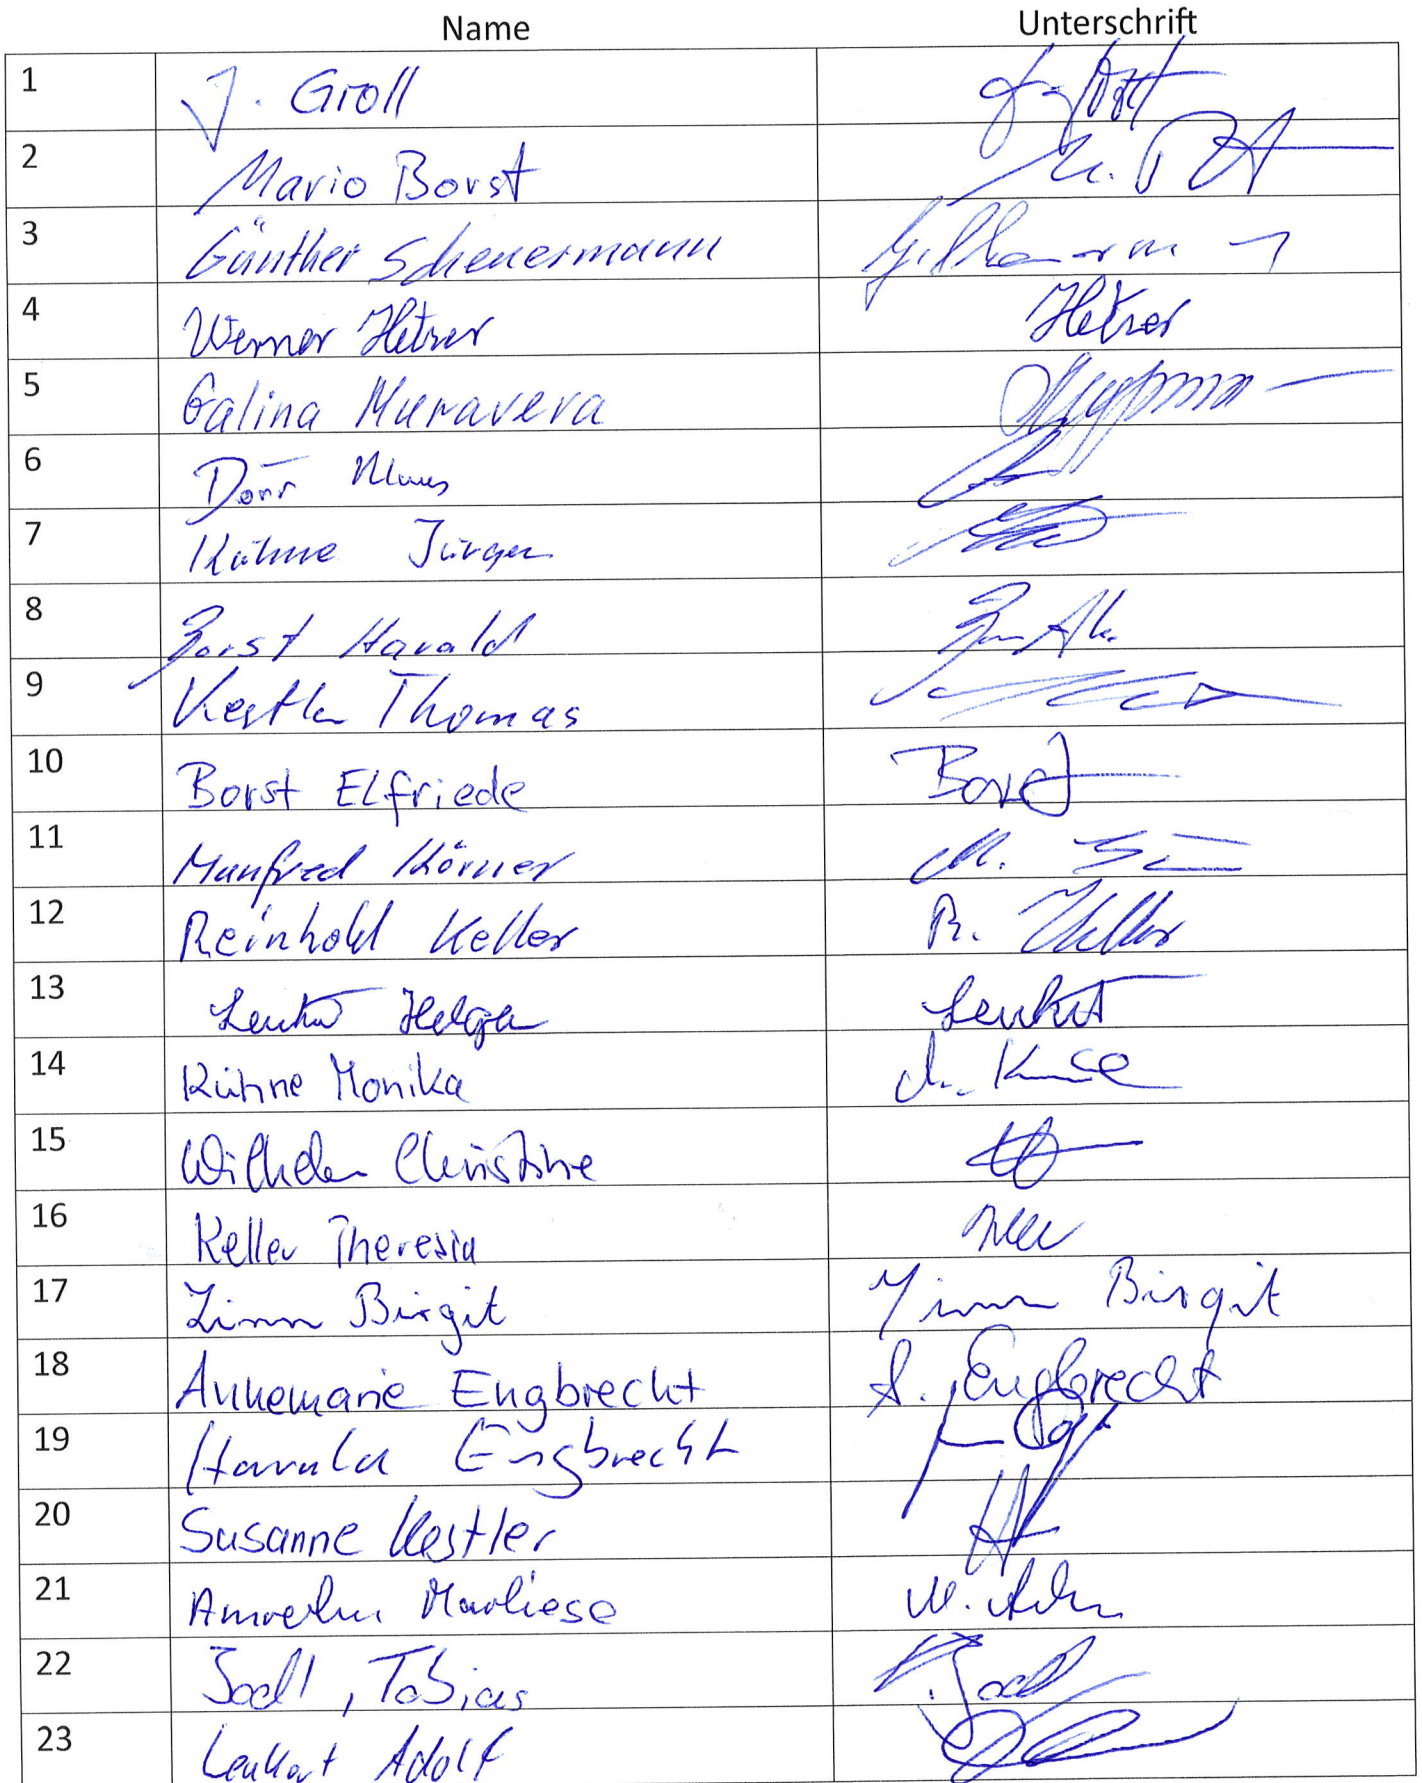 Name Unterschrift
1 J. Groll
2 Mario Borst
3 Günther Scheuermann
4 Werner Hetzer Hetzer
5 Galina Muravera
6 Dörr Klaus
7 Kühne Jürgen
8 Borst Harald
9 Kestler Thomas
10 Borst Elfriede Borst
11 Manfred Körner M.
12 Reinhold Keller R. Keller
13 Helga
14 Kühne Monika
15 Wilhelm Christine
16 Keller Theresia
17 Zinn Birgit Zinn Birgit
18 Annemarie Engbrecht A. Engbrecht
19 Harald Engbrecht
20 Susanne Kestler
21 Marliese
22 Jodl, Tobias T. Jodl
23 Lenhart Adolf